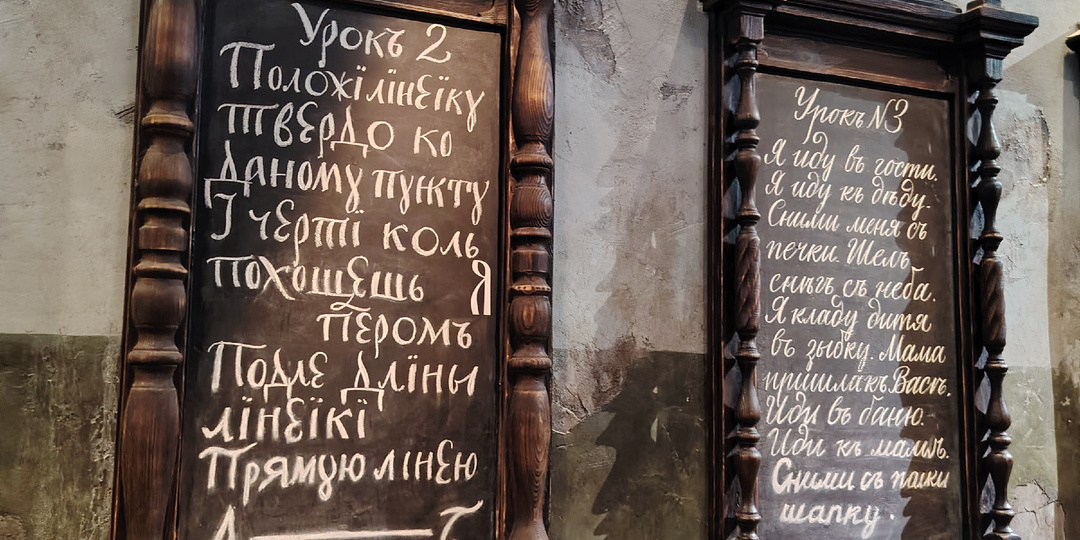 Урокъ 2
Положї лїнѣїку
твердо ко
даному пункту
І чертї коль
похощешь Я
перомъ
Подле длїны
лїнеїкї
Прямую лїнѣю
Урокъ N3
Я иду въ гости.
Я иду къ дѣду.
Сними меня съ
печки. Шелъ
снѣгъ съ неба.
Я кладу дитя
въ зыбку. Мама
пришила къ Васѣ.
Иди въ баню.
Иди къ мамѣ.
Сними съ палки
шапку.